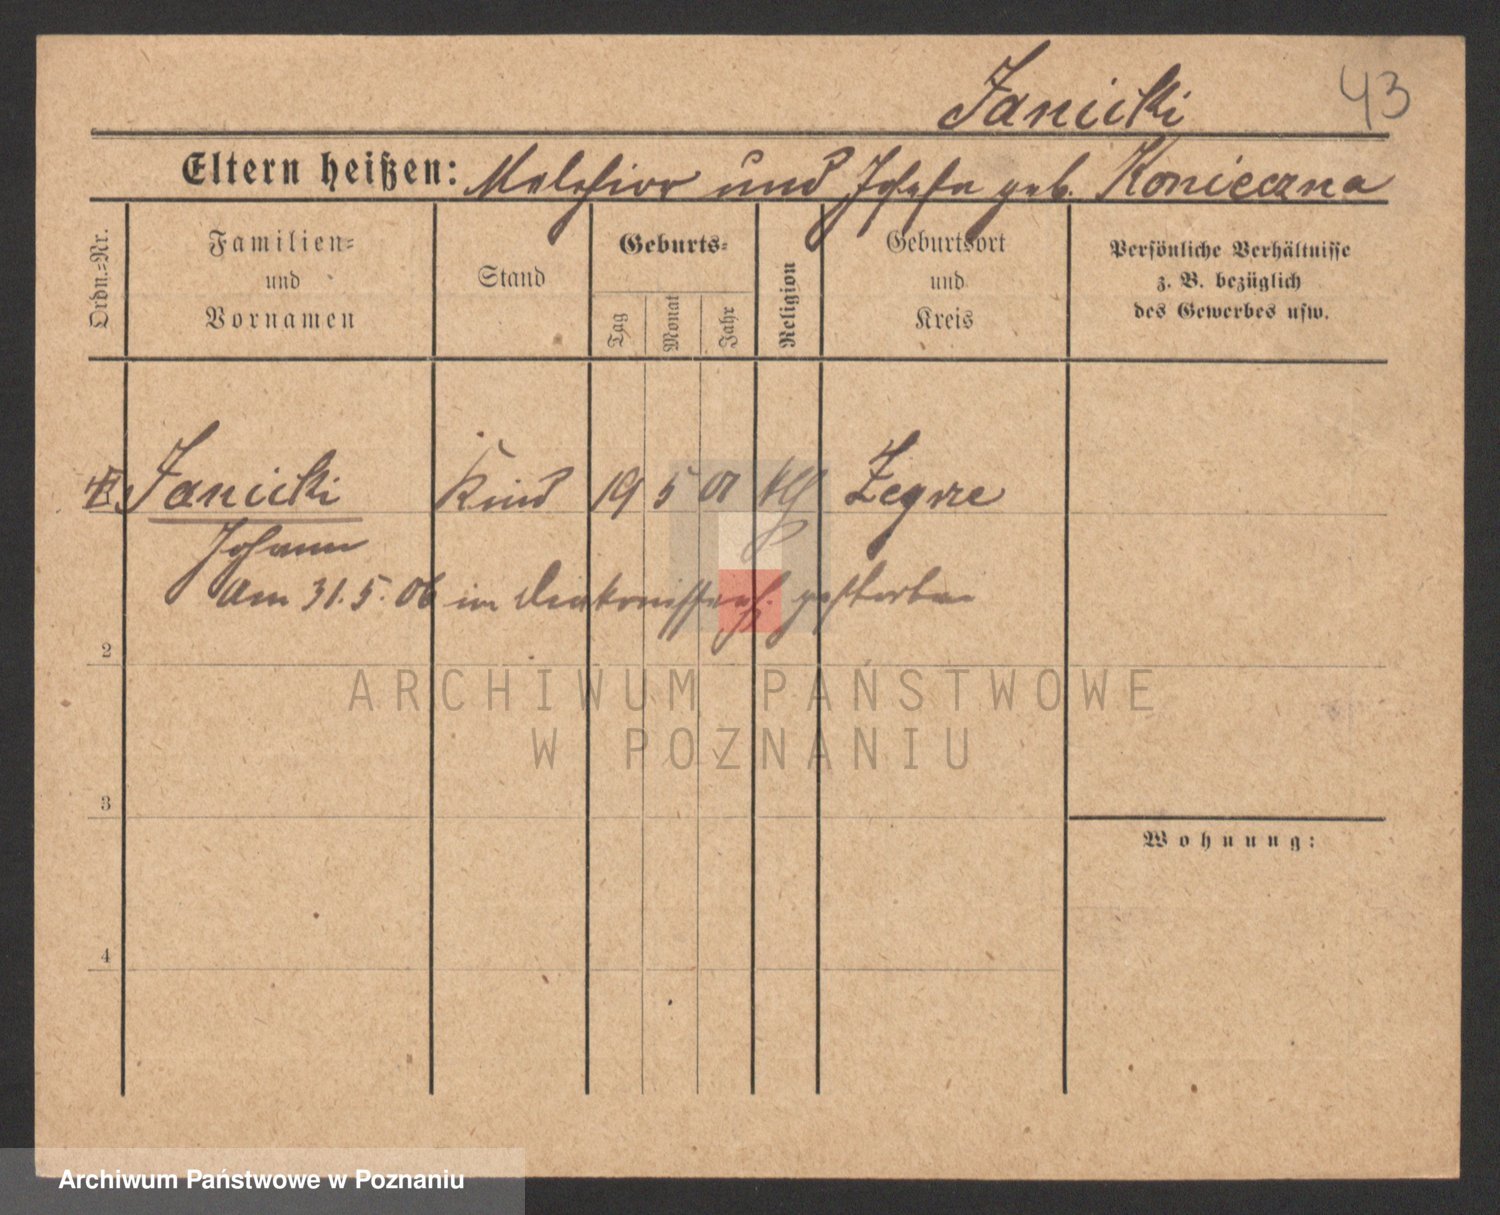 Janicki 43
Eltern heißen: Melchior und Josefa geb. Konieczna
Ordn.=Nr.
Familien=
und
Vornamen
Stand
Geburts=
Tag
Monat
Jahr
Religion
Geburtsort
und
Kreis
Persönliche Verhältnisse
z. B. bezüglich
des Gewerbes usw.
Janicki Kind 19 5 01 kth Zegrze
Johann
Am 31.5.06 im Diakonissenh. gestorben
2
ARCHIWUM PAŃSTWOWE
W POZNANIU
3
Wohnung:
4
Archiwum Państwowe w Poznaniu